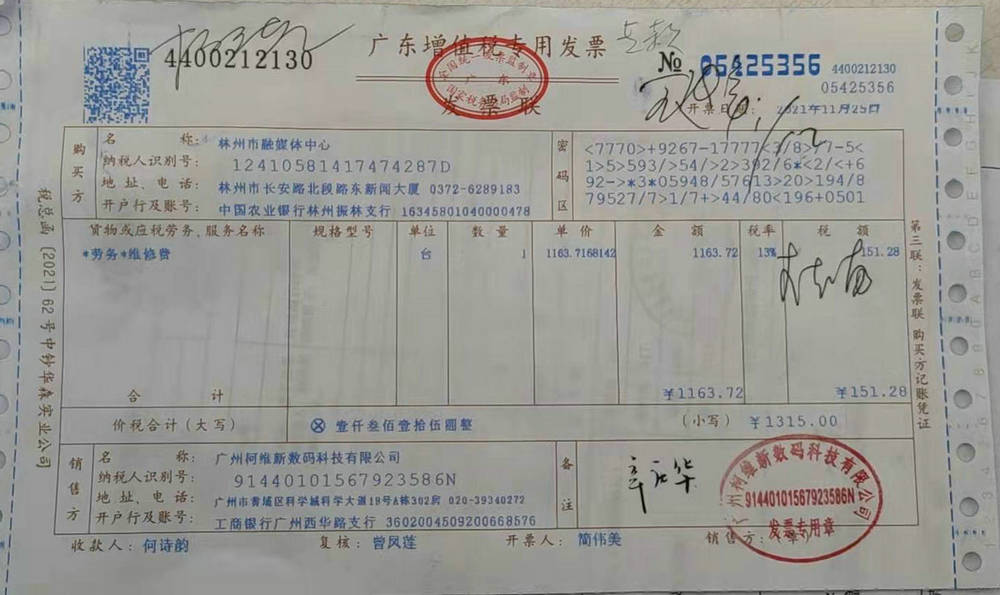 4400212130
广东增值税专用发票
发票联
№ 05425356
4400212130
05425356
开票日期: 2021年11月25日
全国统一发票监制章
广东
国家税务总局监制
购买方
名 称: 林州市融媒体中心
纳税人识别号: 12410581417474287D
地址、电话: 林州市长安路北段路东新闻大厦 0372-6289183
开户行及账号: 中国农业银行林州振林支行 16345801040000478
密码区
1>5>593/>54/>2>392/6*<2/<+6
92->*3*05948/57613>20>194/8
79527/7>1/7+>44/80<196+0501
货物或应税劳务、服务名称 规格型号 单位 数量 单价 金额 税率 税额
*劳务*维修费 台 1 1163.7168142 1163.72 13% 151.28
合计 ¥1163.72 ¥151.28
价税合计(大写) ⊗壹仟叁佰壹拾伍圆整 (小写) ¥1315.00
销售方
名 称: 广州柯维新数码科技有限公司
纳税人识别号: 91440101567923586N
地址、电话: 广州市黄埔区科学城科学大道19号A栋302房 020-39340272
开户行及账号: 工商银行广州西华路支行 3602004509200668576
备注
广州柯维新数码科技有限公司
91440101567923586N
发票专用章
收款人: 何诗韵 复核: 曾凤莲 开票人: 简伟美 销售方:
税总函〔2021〕62号中钞华森实业公司
第三联:发票联 购买方记账凭证